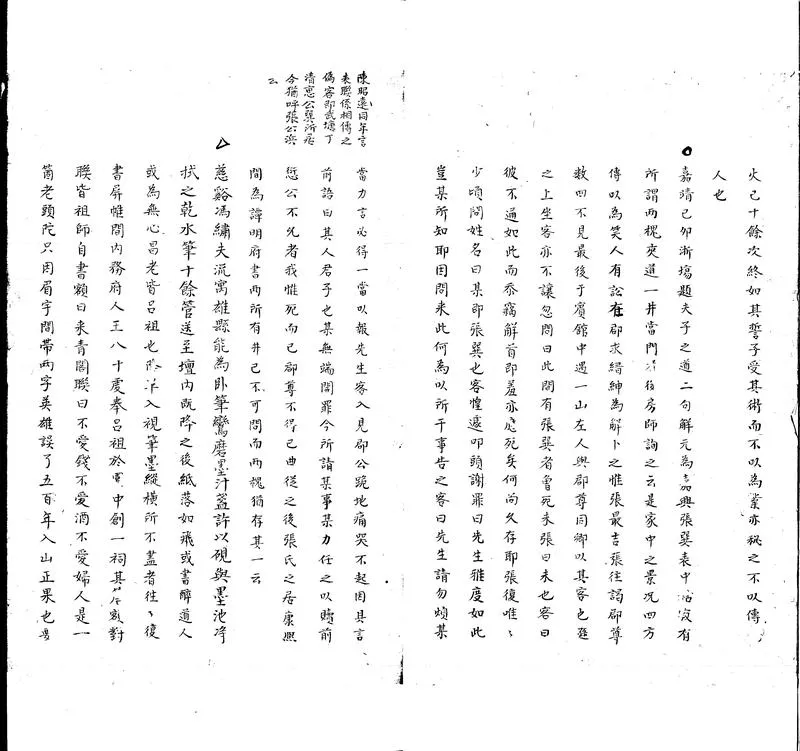 火已十餘次終如其誓子受其術而不以為業亦秘之不以傳
人也
嘉靖己卯浙塲題夫子之道二句解元為嘉興張巽表中有
所謂兩槐夾道一井當門後房師詢之云是家中之景况四方
傳以為笑人有訟在郡求縉紳為解卜之惟張最吉張往謁郡尊
数四不見最後于賓館中遇一山左人與郡尊同鄉以其客也延
之上坐客亦不讓忽問曰此間有張巽者曾死未張曰未也客曰
彼不通如此而忝竊解首即羞亦應死矣何尚久存耶張復唯〻
少頃問姓名曰某即張巽也客惶遽叩頭謝罪曰先生雅度如此
豈某所知耶因問来此何為以所干事告之客曰先生請勿煩某
當力言必得一當以報先生客入見郡公跪地痛哭不起因具言
前語曰其人君子也某無端開罪今所請某事某力任之以贖前
愆公不允者我惟死而已郡尊不得已曲從之後張氏之居康熙
間為諱明府書兩所有井已不可問而兩槐猶存其一云
陳昭遠同年言
表聯係相傳之
偽客即武塘丁
清惠公巽所居
今猶呼張公浜
云
慈谿馮繡夫流寓雄縣能為卧筆鸞磨墨汁盖許以硯與墨池浄
拭之乾水筆十餘管送至壇内既降之後紙落如飛或書醉道人
或為無心昌老皆吕祖也入視筆墨縱横所不盖者徃〻復
書屏帷間内務府人王八十處奉吕祖於中創一祠其對
聯皆祖師自書額曰来青閣聯曰不愛錢不愛酒不愛婦人是一
箇老頭陀只因眉宇間帶兩字英雄誤了五百年入山正果也要